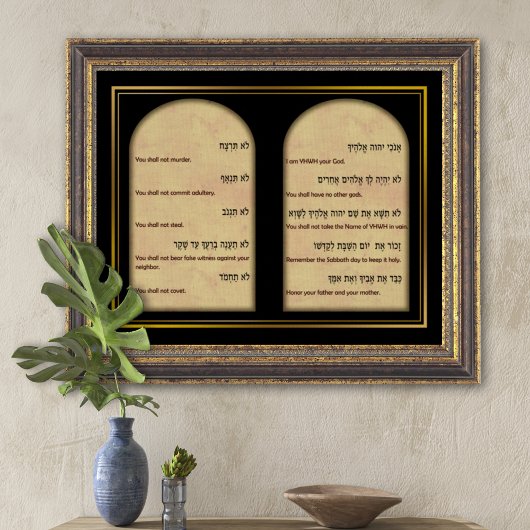 אָנֹכִי יהוה אֱלֹהֶיךָ
I am YHWH your God.
לֹא יִהְיֶה לְךָ אֱלֹהִים אֲחֵרִים
You shall have no other gods.
לֹא תִשָּׂא אֶת שֵׁם יהוה אֱלֹהֶיךָ לַשָּׁוְא
You shall not take the Name of YHWH in vain.
זָכוֹר אֶת יוֹם הַשַּׁבָּת לְקַדְּשׁוֹ
Remember the Sabbath day to keep it holy.
כַּבֵּד אֶת אָבִיךָ וְאֶת אִמֶּךָ
Honor your father and your mother.
לֹא תִּרְצָח
You shall not murder.
לֹא תִּנְאָף
You shall not commit adultery.
לֹא תִּגְנֹב
You shall not steal.
לֹא תַעֲנֶה בְרֵעֲךָ עֵד שָׁקֶר
You shall not bear false witness against your
neighbor.
לֹא תַחְמֹד
You shall not covet.